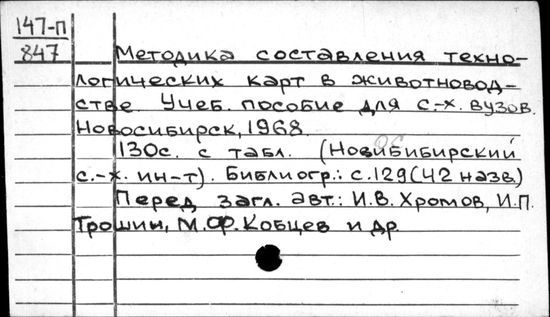 147-П
847
Методика составления техно-
логических карт в животновод-
стве. Учеб. пособие для с.-х. вузов.
Новосибирск, 1968.
130с. с табл. (Новибибирский
ос
с.-х. ин-т). Библиогр.: с.129(42 назв.)
Перед загл. авт.: И.В. Хромов, И.П.
Трошин, М.Ф. Кобцев и др.